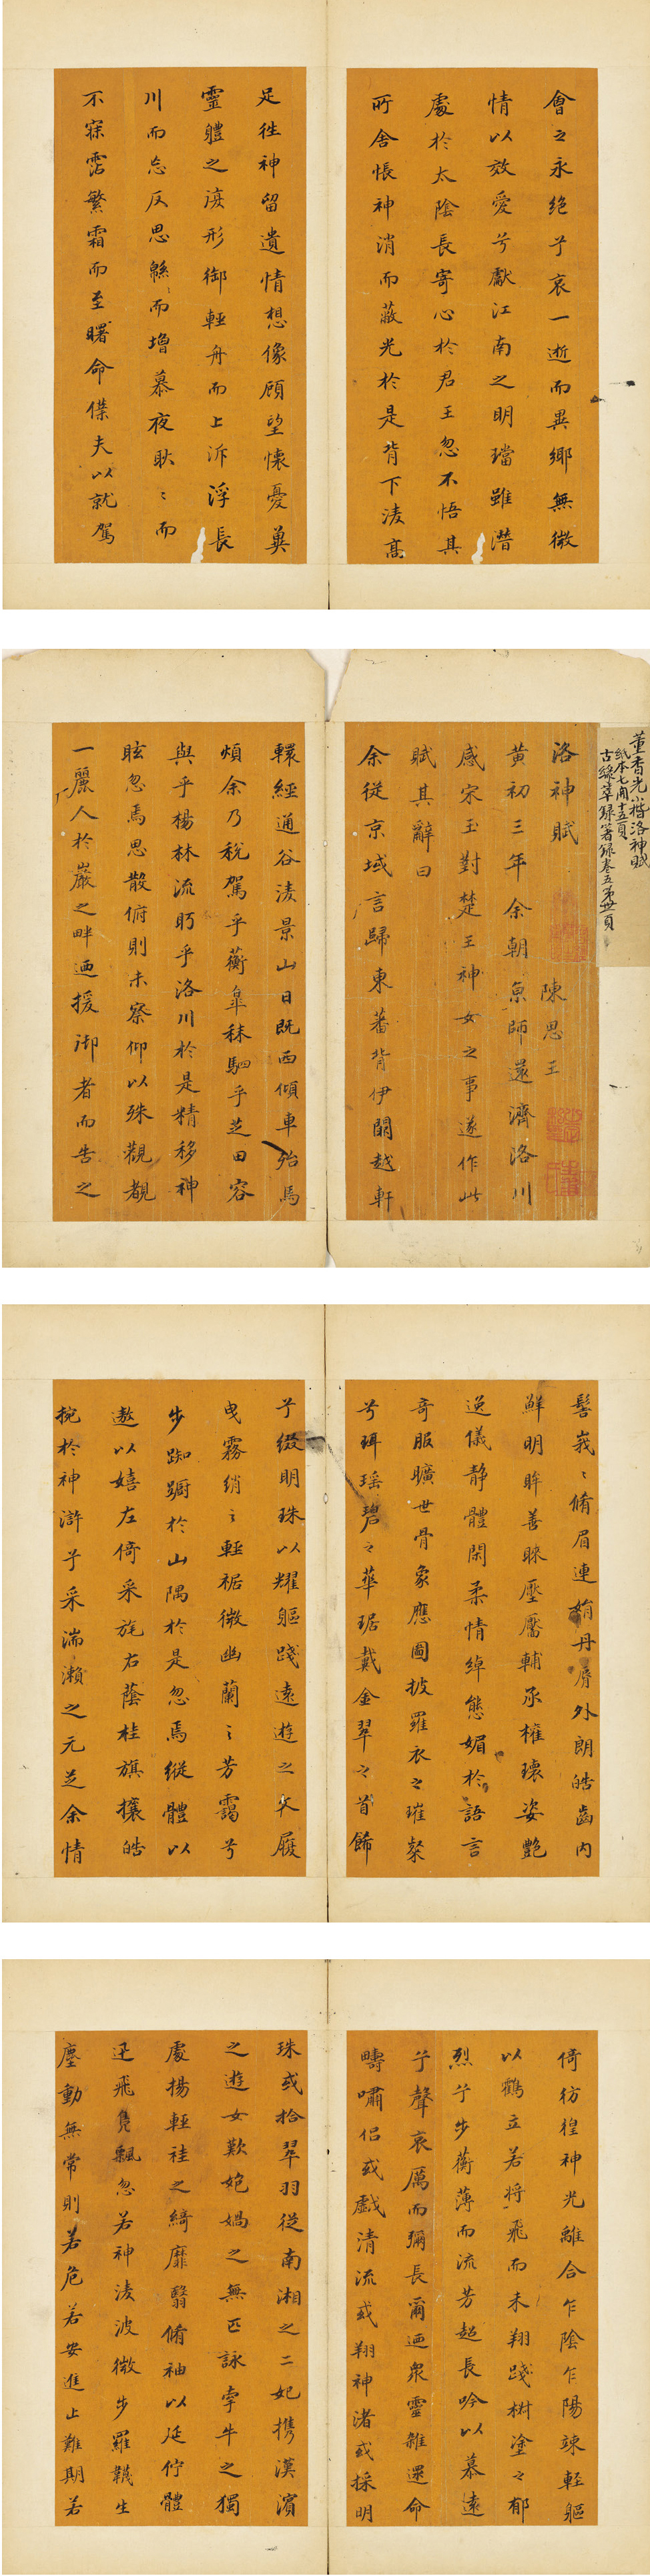 會之永絕兮哀一逝而異鄉無微
情以效愛兮獻江南之明璫雖潛
處於太陰長寄心於君王忽不悟其
所舍悵神消而蔽光於是背下淩高
足往神留遺情想像顧望懷憂冀
靈體之復形御輕舟而上泝浮長
川而忘反思緜〻而增慕夜耿〻而
不寐霑繁霜而至曙命僕夫以就駕
董香光小楷洛神賦
紙本七開十五頁
古緣萃錄著錄卷五第廿頁
洛神賦 陳思王
黃初三年余朝京師還濟洛川
感宋玉對楚王神女之事遂作此
賦其辭曰
余從京域言歸東蕃背伊闕越軒
轘經通谷淩景山日既西傾車殆馬
煩余乃稅駕乎蘅皐秣駟乎芝田容
與乎楊林流眄乎洛川於是精移神
眩忽焉思散俯則未察仰以殊觀覩
一麗人於巖之畔迺援御者而告之
髻峩〻脩眉連娟丹脣外朗皓齒內
鮮明眸善睞壓靨輔承權瓌姿艷
逸儀靜體閑柔情綽態媚於語言
奇服曠世骨象應圖披羅衣之璀粲
兮珥瑤碧之華琚戴金翠之首飾
兮綴明珠以耀軀踐遠遊之文履
曳霧綃之輕裾微幽蘭之芳靄兮
步踟躕於山隅於是忽焉縱體以
遨以嬉左倚采旄右蔭桂旗攘皓
捥於神滸兮采湍瀨之元芝余情
倚彷徨神光離合乍陰乍陽竦輕軀
以鶴立若將飛而未翔踐椒塗之郁
烈兮步蘅薄而流芳超長吟以慕遠
兮聲哀厲而彌長爾迺眾靈雜遝命
疇嘯侶或戲清流或翔神渚或採明
珠或拾翠羽從南湘之二妃攜漢濱
之遊女歎匏媧之無匹詠牽牛之獨
處揚輕袿之綺靡翳脩袖以延佇體
迅飛鳧飄忽若神淩波微步羅韈生
塵動無常則若危若安進止難期若